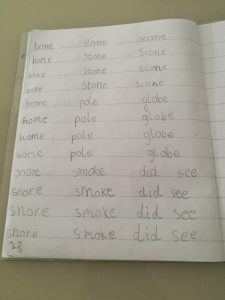 bone stone scone
bone stone scone
bone stone scone
bone stone scone
home pole globe
home pole globe
home pole globe
home pole globe
snore smoke did see
snore smoke did see
snore smoke did see
snore smoke did see
28